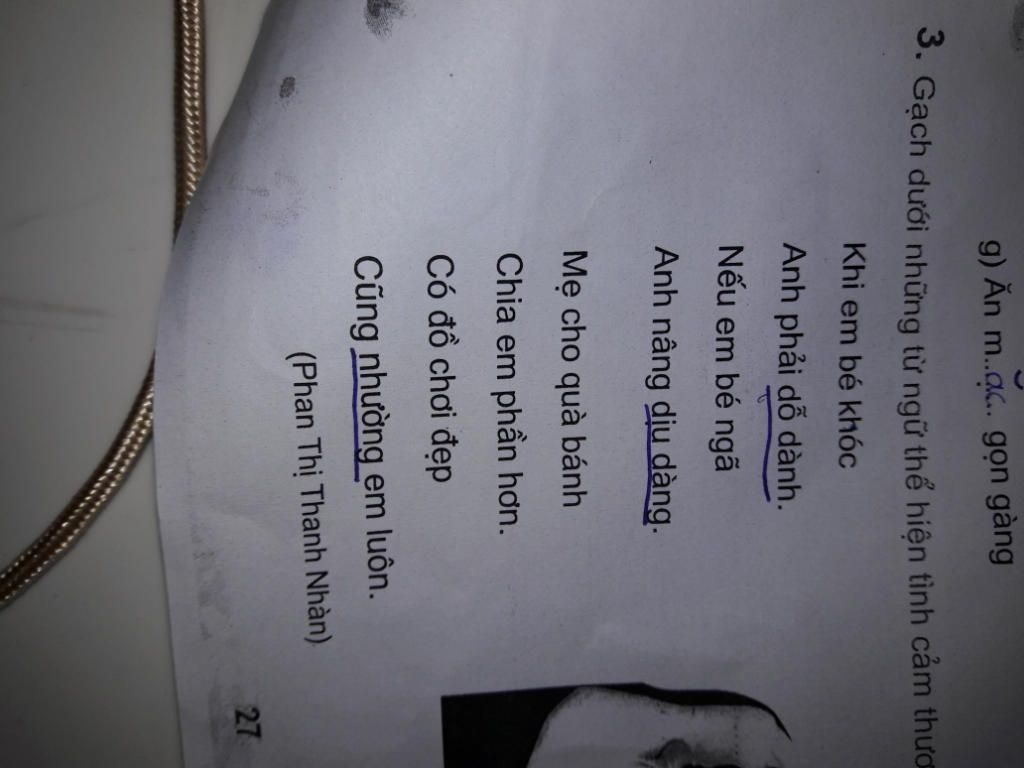 g) Ăn m..ặc.. gọn gàng
3. Gạch dưới những từ ngữ thể hiện tình cảm
Khi em bé khóc
Anh phải dỗ dành.
Nếu em bé ngã
Anh nâng dịu dàng.
Mẹ cho quà bánh
Chia em phần hơn.
Có đồ chơi đẹp
Cũng nhường em luôn.
(Phan Thị Thanh Nhàn)
27